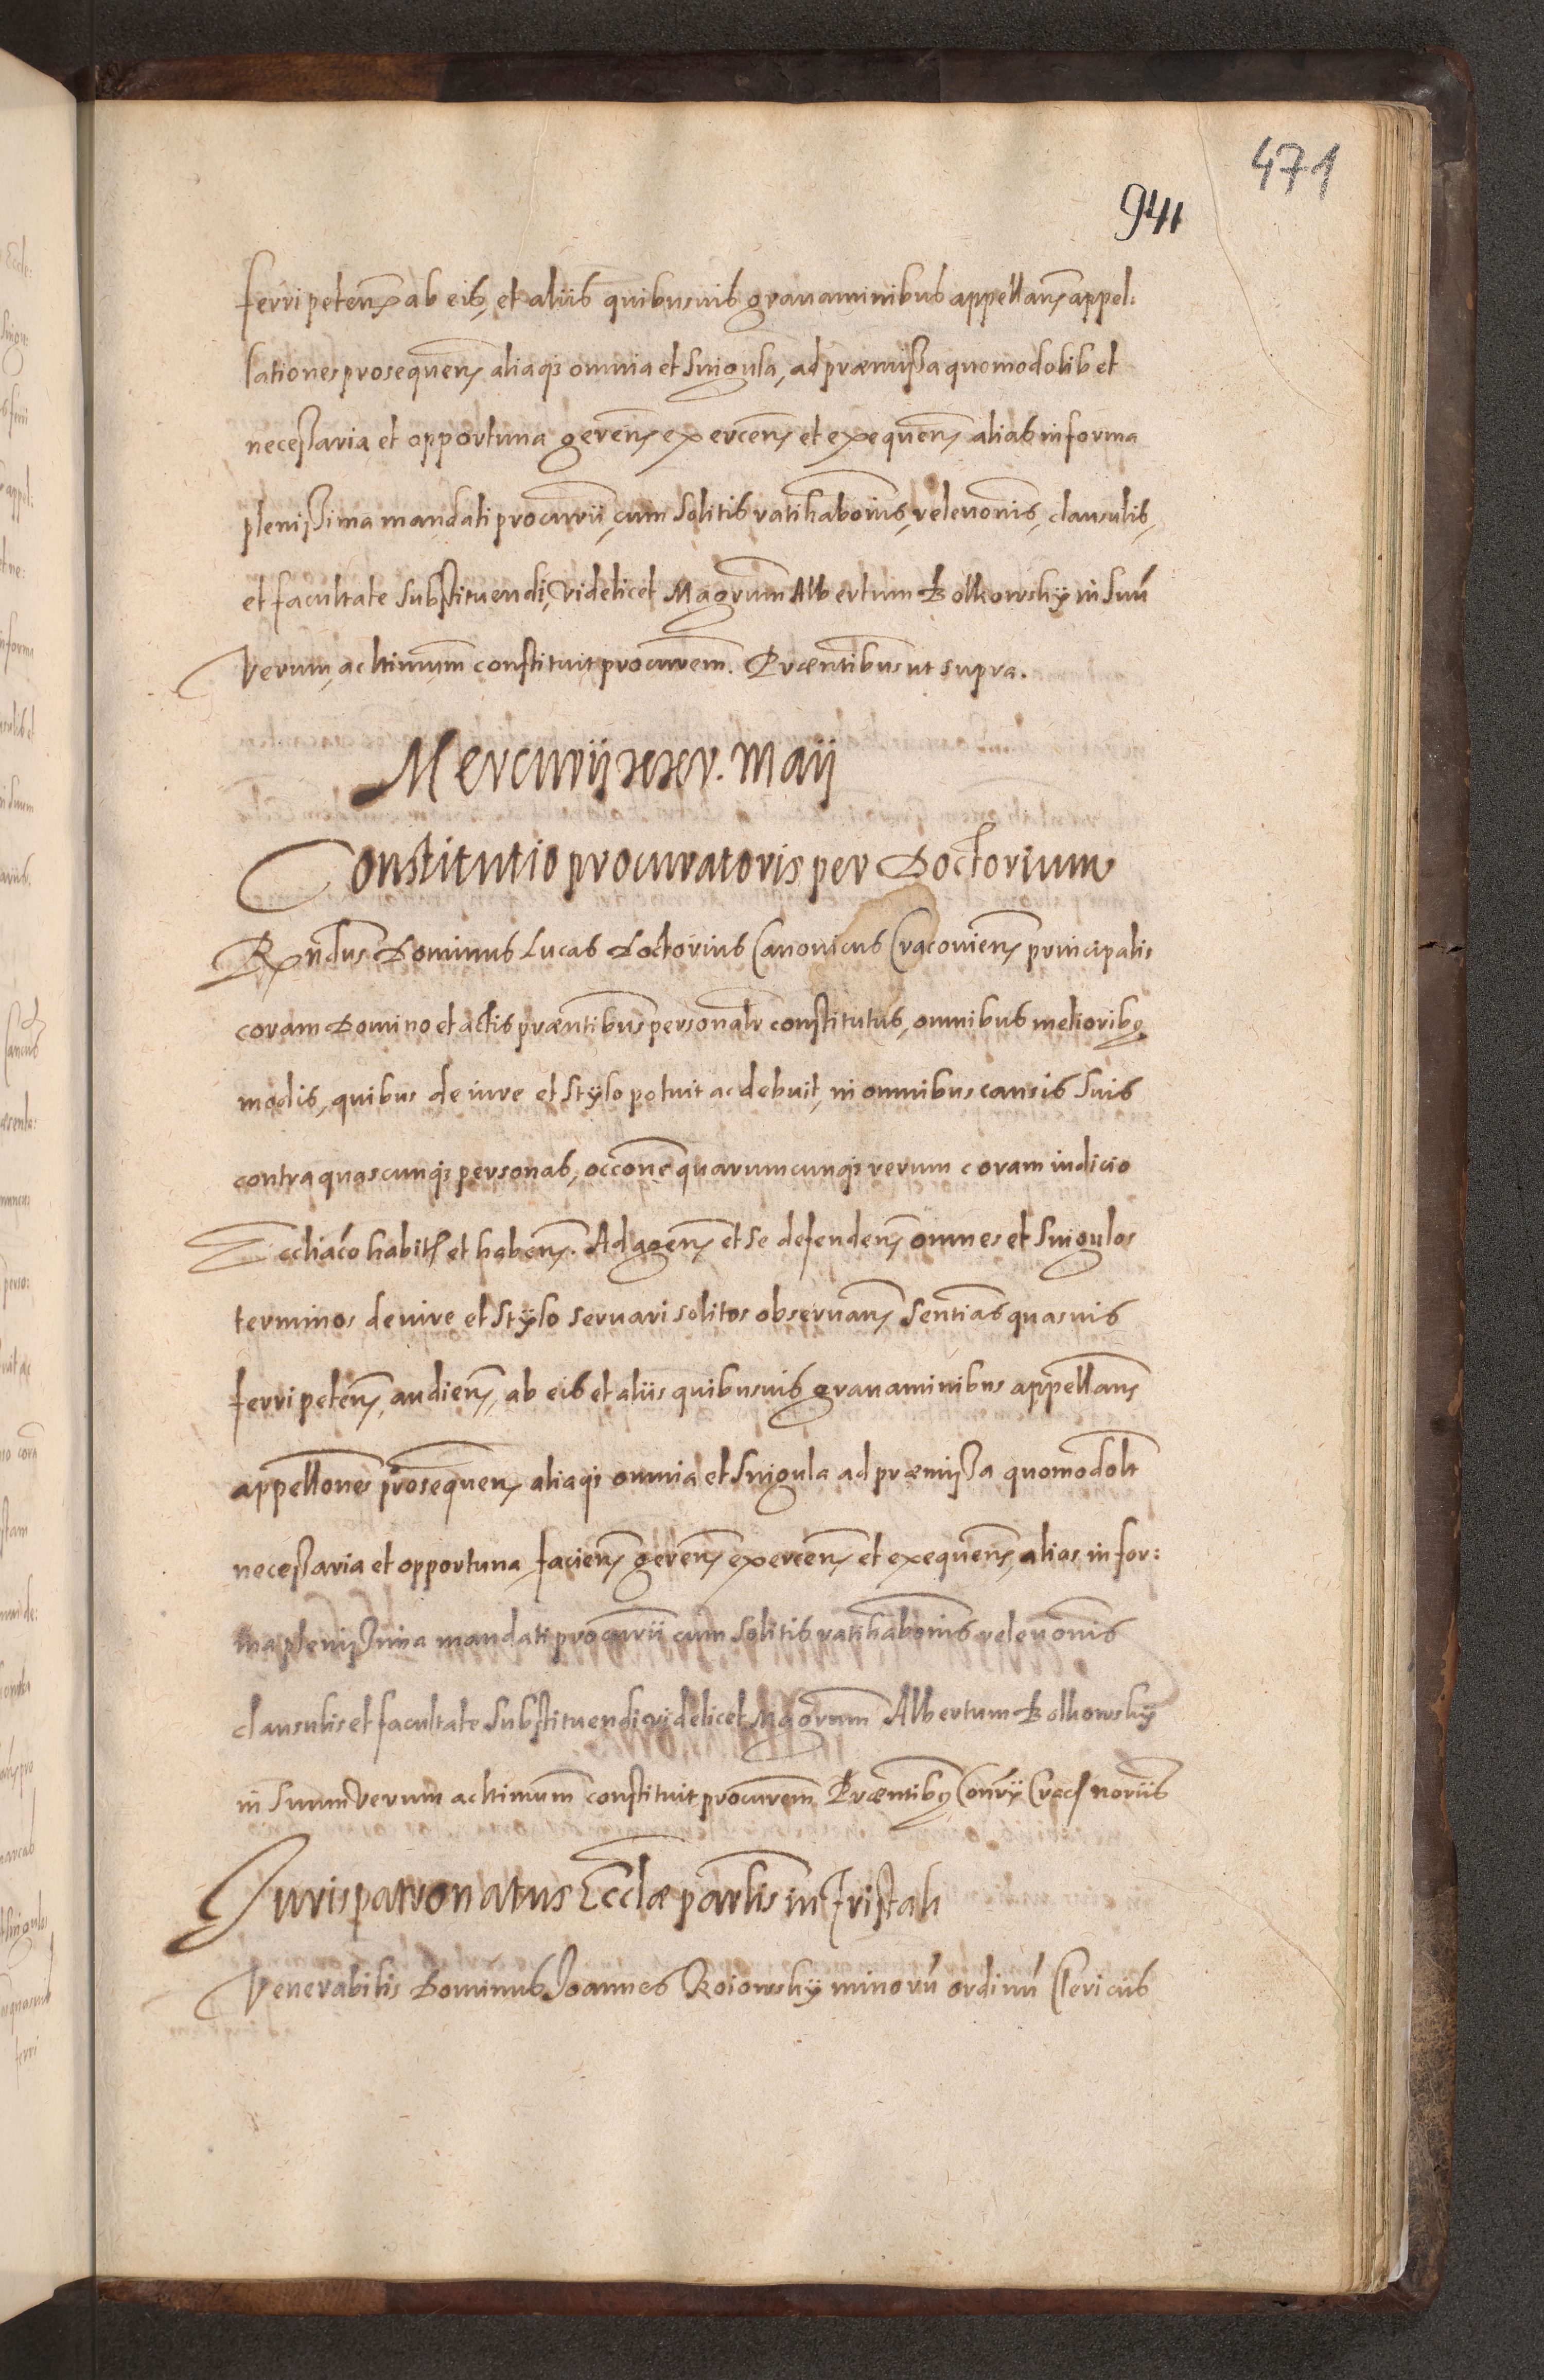 471
941
ferri peten. ab eis, et aliis quibusuis grauaminibus appellan. appel:
lationes prosequen. aliaq; omnia et singula, ad præmissa quomodolibet
necessaria et opportuna geren. exercen. et exequen. alias in forma
plenissima mandati procurrii, cum solitis ratihabonis, releuonis, clausulis,
et facultate substituendi, videlicet Magrum Albertum Bolkowskÿ in suũ
Verum, ac ltimum constituit procurrem. Præntibus ut supra.
Mercurij xxv. Maij
Constitutio procuratoris per Doctorium
Rndus Dominus Lucas Doctorius Canonicus Cracouien. principalis
coram Domino et actis præntibus personalr constitutus, omnibus melioribq
modis, quibus de iure et stÿlo potuit ac debuit, in omnibus causis suis
contra quascunq; personas, occone quarumcunq; rerum coram iudicio
Eccliaco habit. et haben. Ad agen. et se defenden. omnes et singulos
terminos de iure et stÿlo seruari solitos obseruan. sentias quasuis
ferri peten. audien. ab eis et aliis quibusuis grauaminibus appellan.
appellones prosequen. aliaq; omnia et singula ad præmissa quomodolt
necessaria et opportuna, facien. geren. exercen. et exequen. alias in for:
ma plenissima mandati procurrii cum solitis ratihabonis releuonis
clausulis et facultate substituendi videlicet Magrum Albertum Bolkowskÿ
in suum Verum ac ltimum constituit procurrem Præntibq Conrÿ Crac. noriis
Jurispatronatus Eccclæ parlis in Fristah
Venerabilis Dominus Joannes Roiowskÿ minorũ ordinũ Clericus